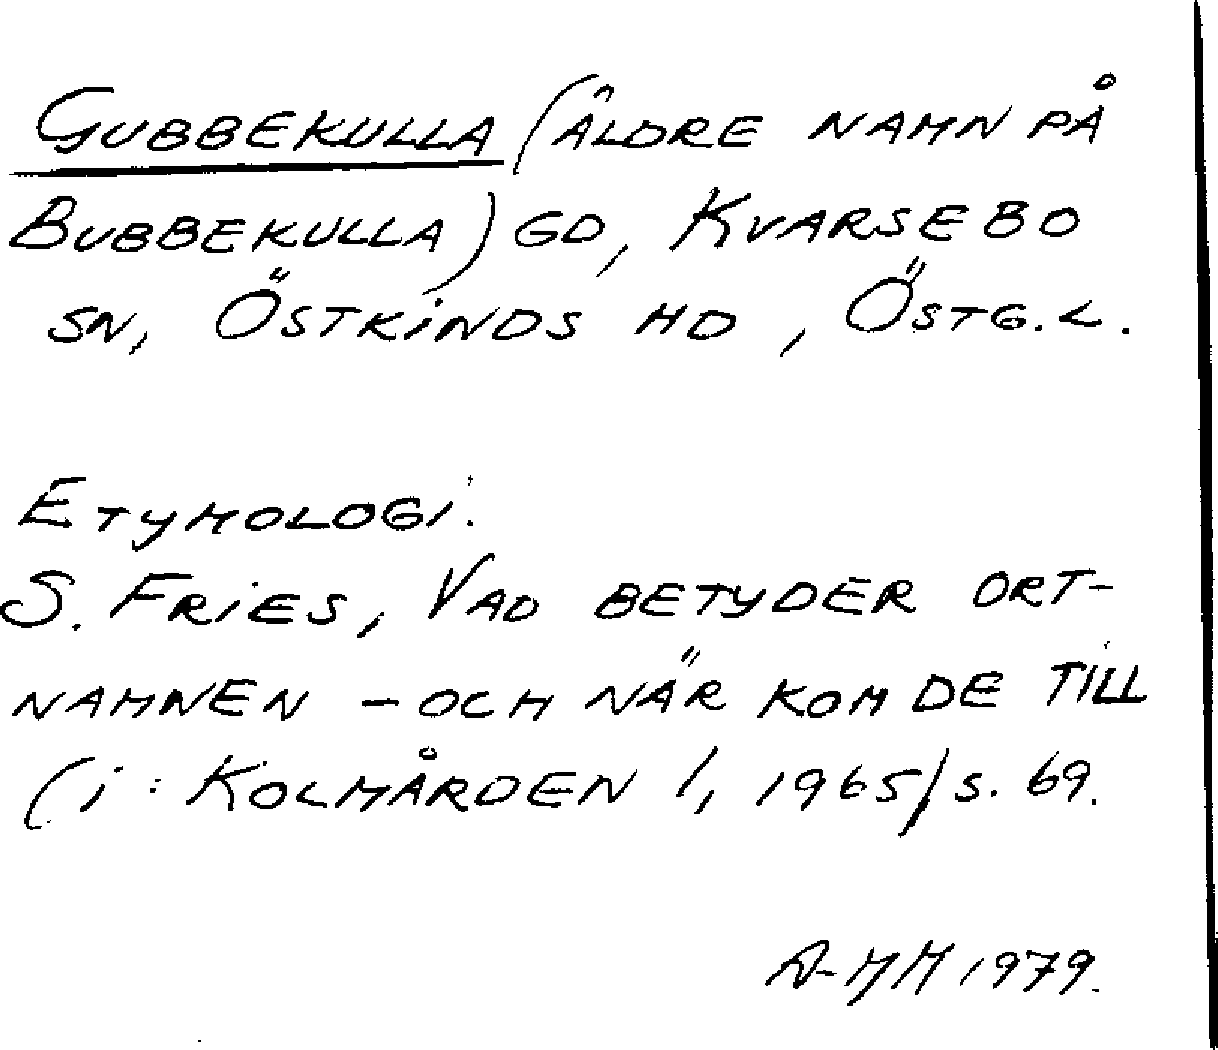 GUBBEKULLA (ÄLDRE NAMN PÅ
BUBBEKULLA) GD, KVARSEBO
SN, ÖSTKINDS HD, ÖSTG.L.
ETYMOLOGI:
S. FRIES, VAD BETYDER ORT-
NAMNEN - OCH NÄR KOM DE TILL
(i: KOLMÅRDEN 1, 1965) S. 69.
A-MM 1979.